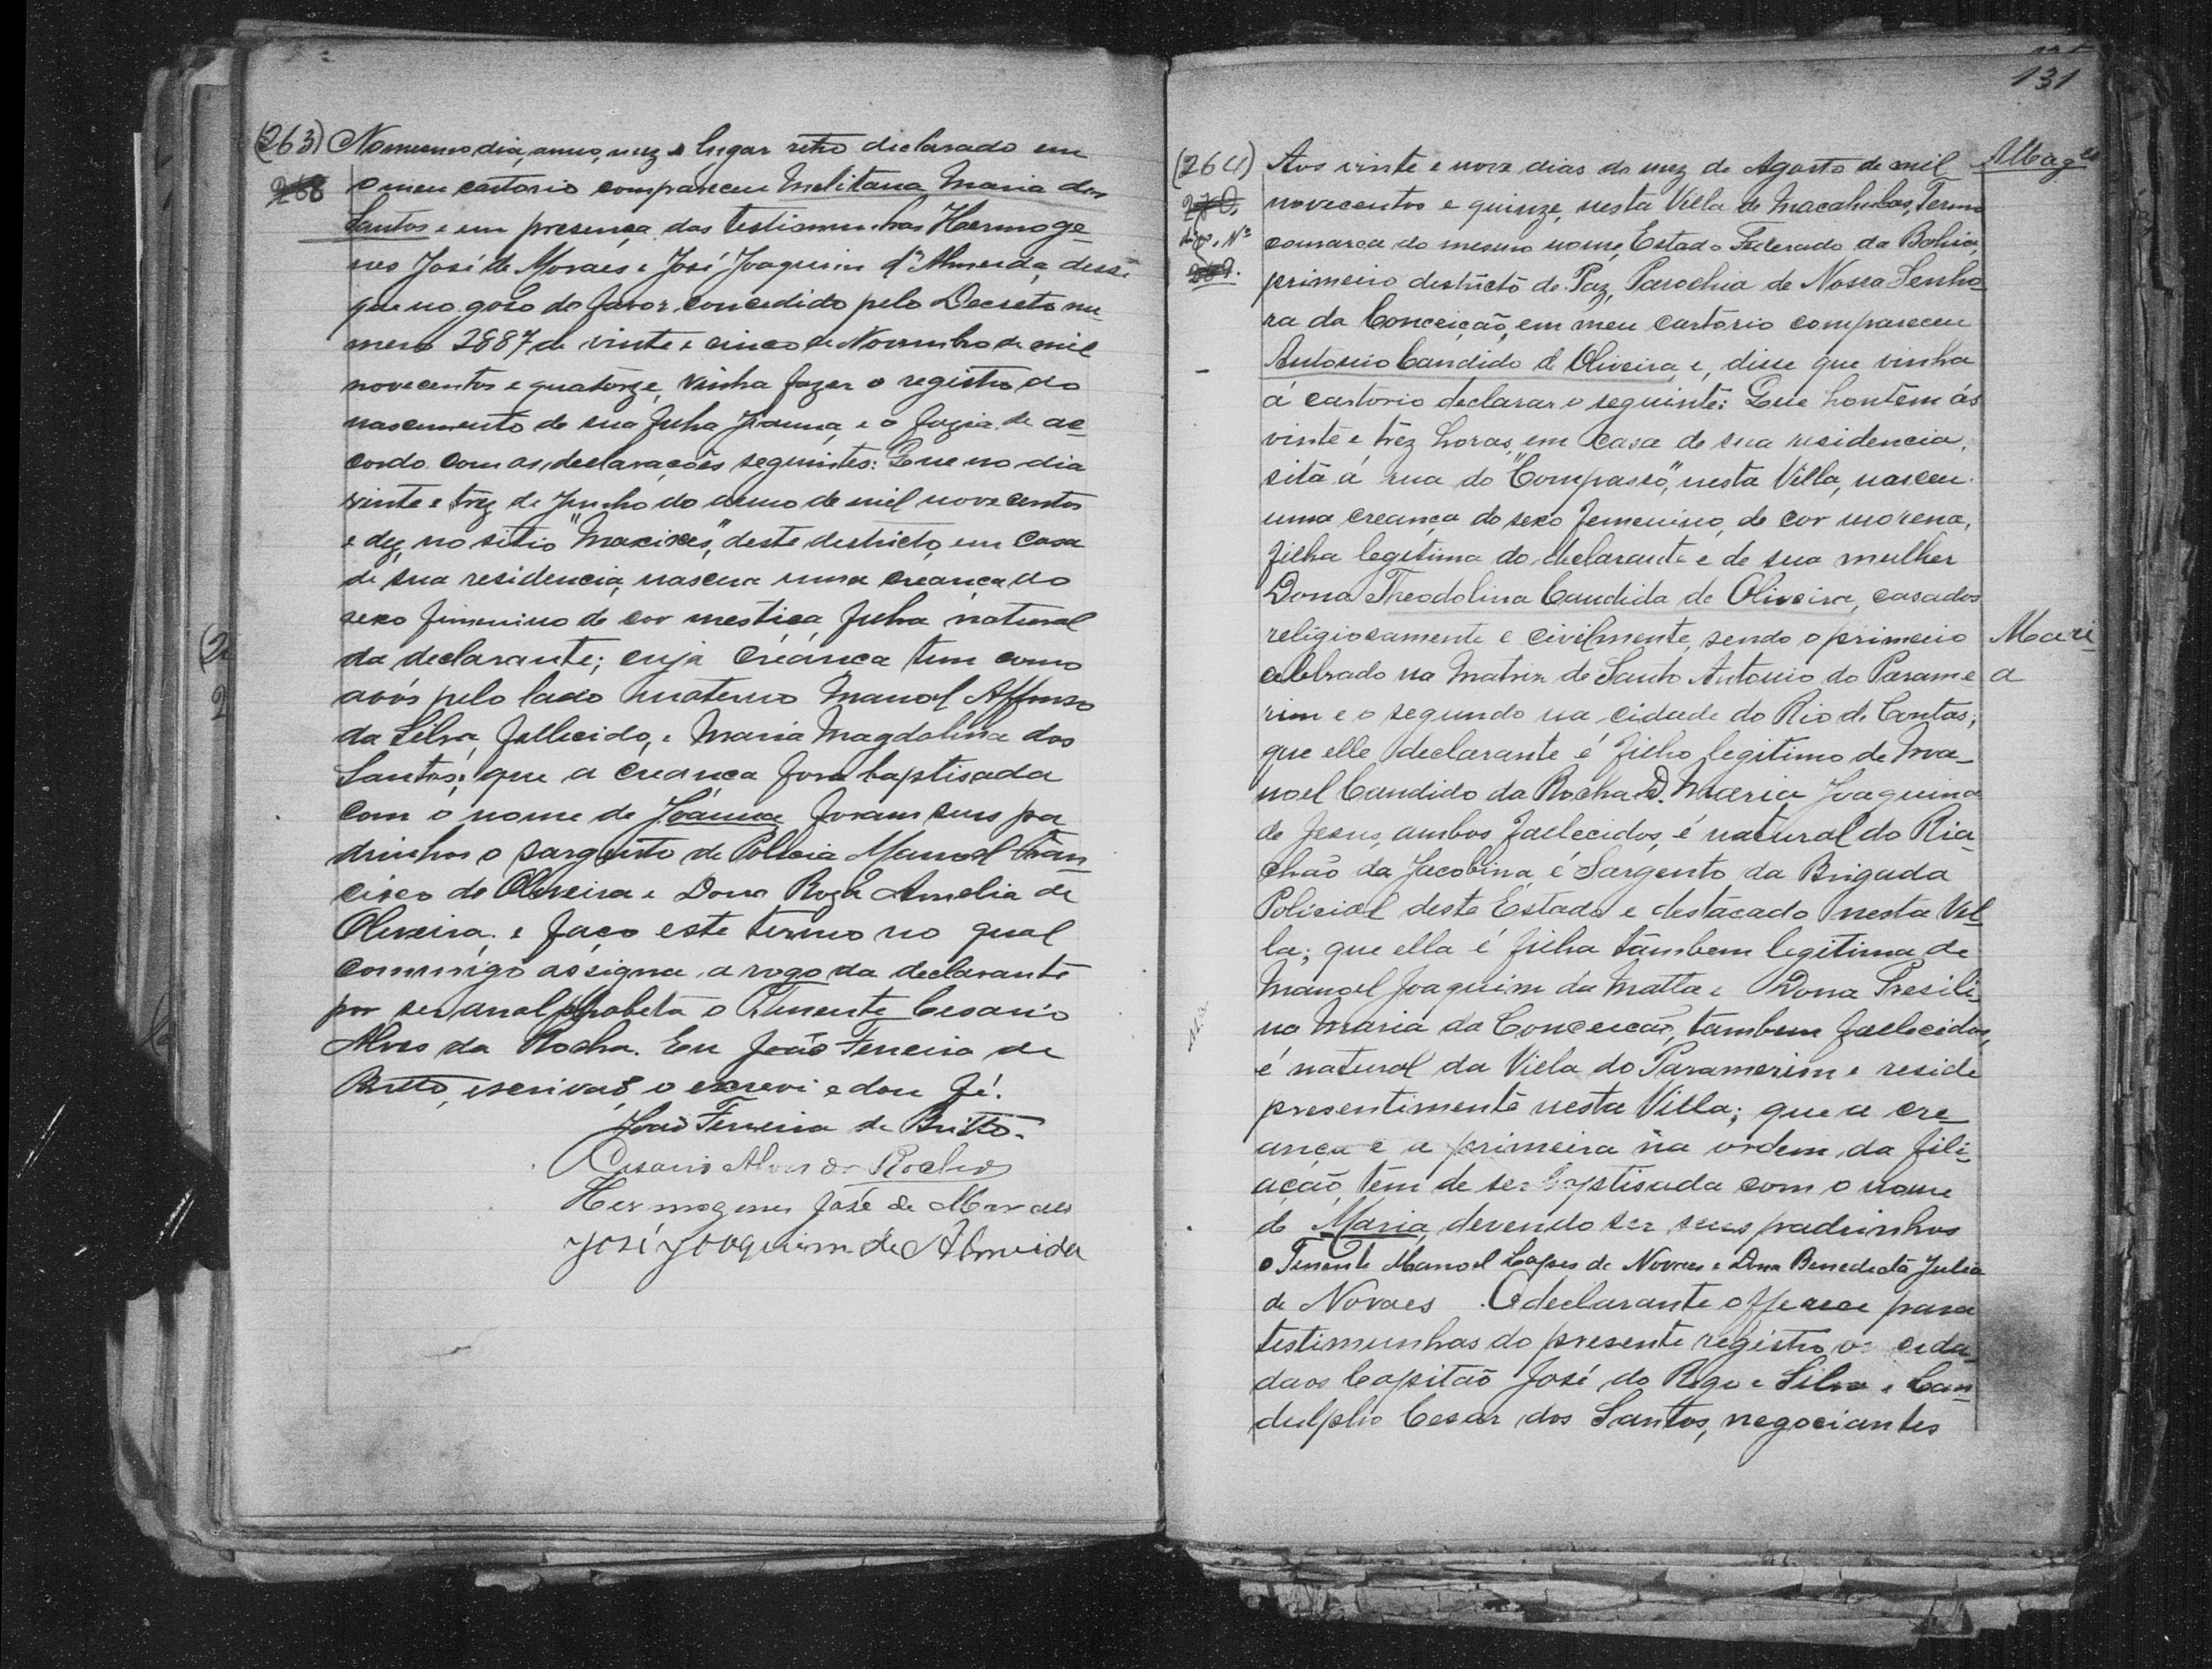 (263) No mesmo dia, anno, mez e lugar retro declarado em
268 o meu cartorio compareceu Melitana Maria dos
Santos e em presença das testiomunhas Hermoge-
nes José de Moraes e José Joaquim d'Almeida, disse
que no goso do favor concedido pelo Decreto nu-
mero 2887 de vinte e cinco de Novembro de mil
novecentos e quatorze, vinha fazer o registro do
nascimento de sua filha Joanna, e o fazia de ac-
cordo com as declarações seguintes: Que no dia
vinte e trez de Junho do anno de mil novecentos
e dez, no sitio "Maxixes", deste destricto, em casa
de sua residencia, nascera uma creança do
sexo femenino de cor mestiça, filha natural
da declarante; cuja creança tem como
avós pelo lado materno Manoel Affonso
da Silva, fallecido, e Maria Magdalena dos
Santos; que a creança fora baptisada
com o nome de Joanna foram seus pa
drinhos o sargento de Policia Manoel Fran-
cisco de Oliveira e Dona Roza Amelia de
Oliveira, e faço este termo no qual
commigo assigna a rogo da declarante
por ser analphabeta o Tenente Cesario
Alves da Rocha. Eu João Ferreira de
Britto, escrivão, o escrevi e dou fé.
João Ferreira de Britto.
Cesario Alves da Rocha
Hermogenes José de Moraes
José Joaquim de Almeida
131
(264) Aos vinte e nove dias do mez de Agosto de mil
270. novecentos e quinze, nesta Villa de Macahubas, Termo
Nº comarca do mesmo nome, Estado Federado da Bahia,
269. primeiro destricto de Paz, Parochia de Nossa Senho-
ra da Conceição, em meu cartorio compareceu
Antonio Candido de Oliveira, e, disse que vinha
á cartorio declarar o seguinte: Que hontem ás
vinte e trez horas, em casa de sua residencia,
sitã á rua do "Compasso", nesta Villa, nasceu
uma creança do sexo femenino, de cor morena,
filha legitima do declarante e de sua mulher
Dona Theodolina Candida de Oliveira, casados
religiosamente e civilmente, sendo o primeiro
Mari-
celebrado na Matriz de Santo Antonio do Parame
a
rim e o segundo na cidade do Rio de Contas;
que elle declarante é filho legitimo de Ma-
noel Candido da Rocha e D. Maria Joaquina
de Jesus, ambos fallecidos, é natural do Ria-
chão da Jacobina, é Sargento da Brigada
Policial deste Estado e destacado nesta Vil-
la; que ella é filha tambem legitima de
Manoel Joaquim da Matta e Dona Presili-
na Maria da Conceição, tambem fallecidos,
é natural da Villa do Paramerim e reside
presentimente nesta Villa; que a cre-
ança é a primeira na ordem da fili-
ação, tem de ser baptisada com o nome
de Maria, devendo ser seus padrinhos
o Tenente Manoel Lopes de Novaes e Dona Benedicta Julia
de Novaes. O declarante offerece para
testimunhas do presente registro os cida-
daos Capitão José do Rego e Silva e Can-
dulpho Cesar dos Santos, negociantes